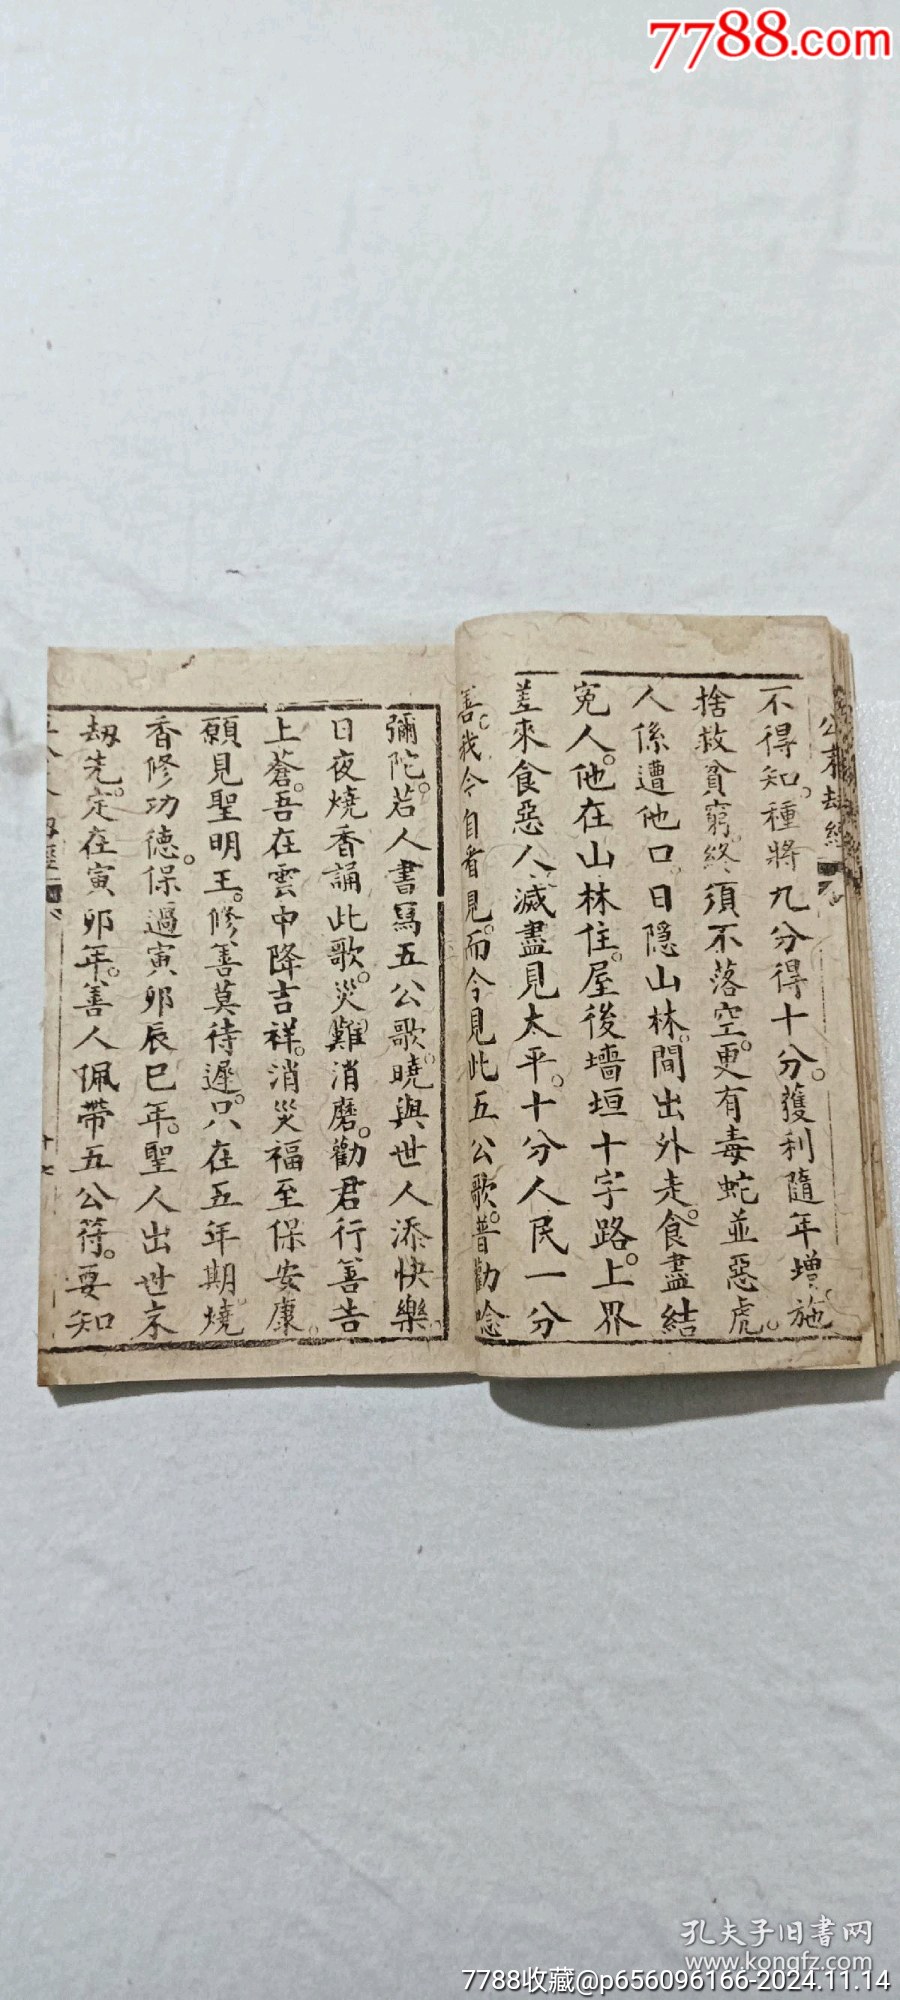 7788.com
公末劫經
不得知。種將九分得十分。獲利隨年增。施
捨救貧窮。終須不落空。更有毒蛇並惡虎。
人係遭他口。日隐山林。間出外走。食盡結
寃人。他在山林住。屋後墻垣十字路。上界
差來食惡人。滅盡見太平。十分人民一分
善。我今自看見。而今見此五公歌。普勸唸
彌陀。若人書寫五公歌。曉與世人添快樂。
日夜燒香誦此歌。災難消磨。勸君行善告
上蒼。吾在雲中降吉祥。消災福至保安康。
願見聖明王。修善莫待遲。只在五年期。燒
香修功德。保過寅卯辰巳年。聖人出世末
劫先。定在寅卯年。善人佩帶五公符。要知
孔夫子旧書网
www.kongfz.com
7788收藏@p656096166-2024.11.14